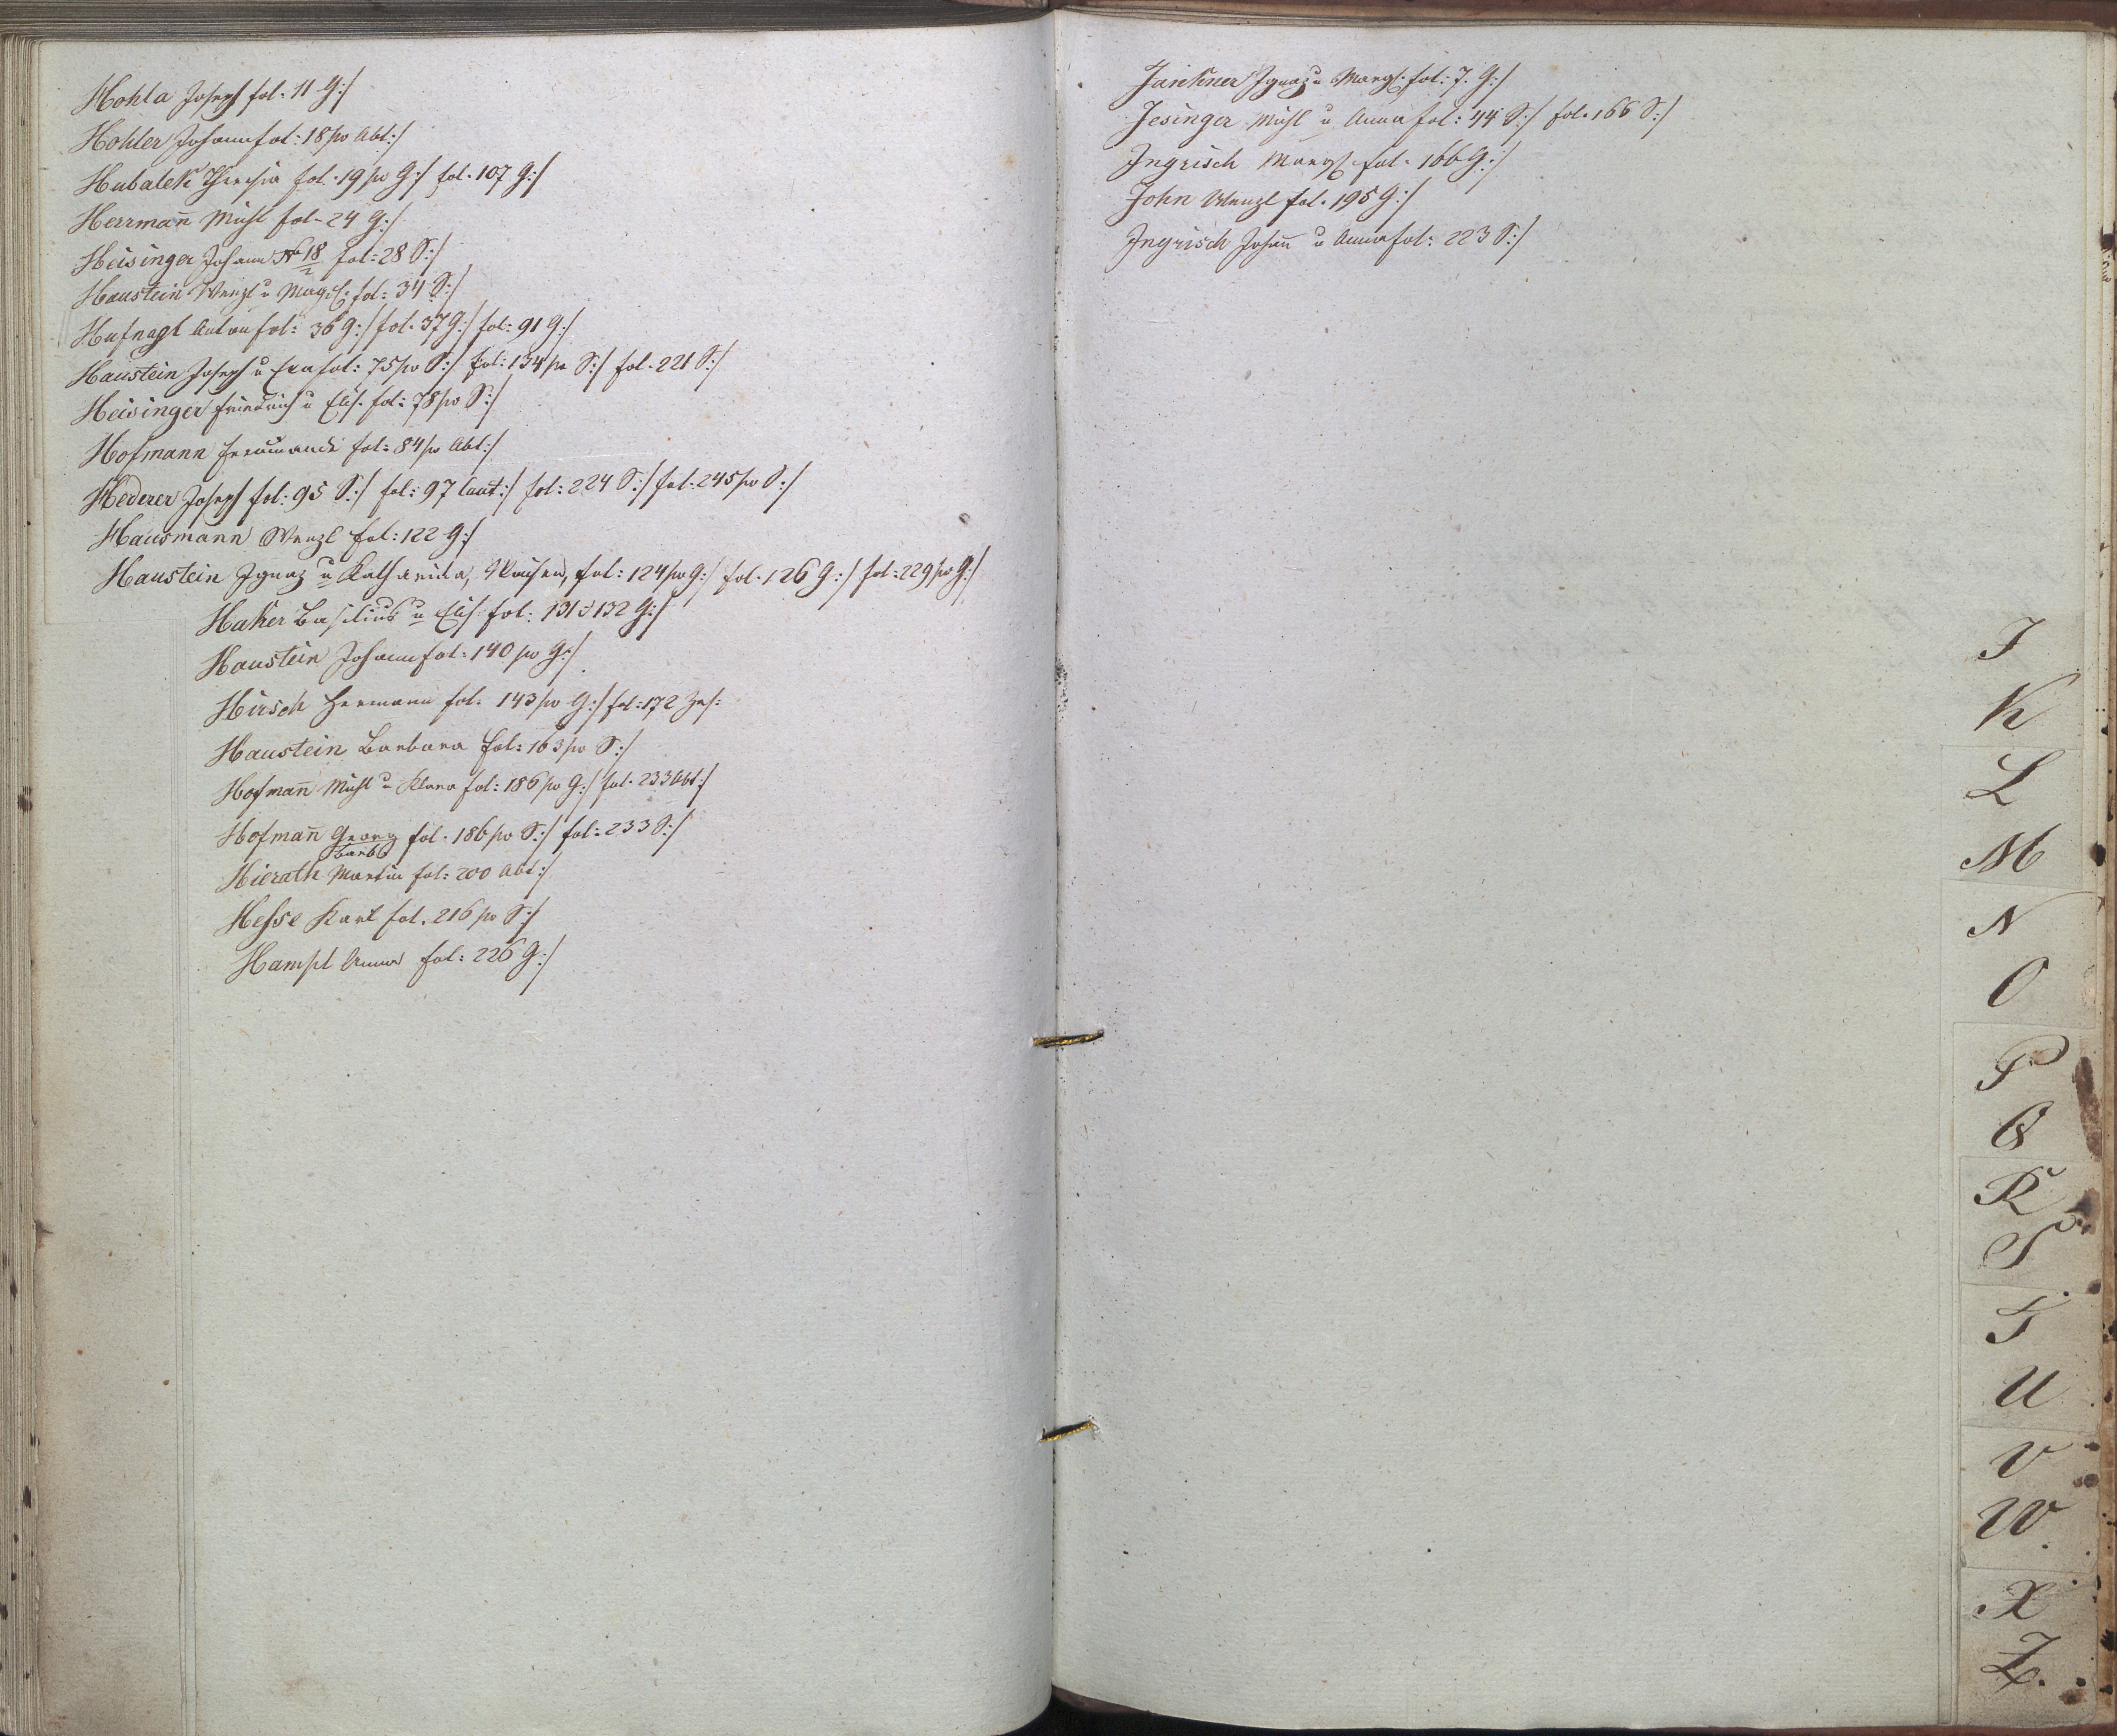 Hohla Joseph fol. 11 G:/
Hohler Johann fol: 18 po Abt:/
Hubalek Theresia fol. 19 po G:/ fol. 107 G:/
Herrmañ Michl fol. 24 G:/
Heisinger Johann No 18 fol: 28 S:/
Haustein Wenzl u Magd: fol: 34 S:/
Hufnagl Anton fol: 36 G:/ fol. 37 G:/ fol: 91 G:/
Haustein Joseph u Eva fol: 75 po S:/ fol: 134 po S:/ fol. 221 S:/
Heisinger Friedrich u Elis. fol: 78 po S:/
Hofmann fol: 84 po Abt:/
Hederer Joseph fol: 95 S:/ fol: 97 Caut:/ fol: 224 S:/ fol: 245 po S:/
Hausmann Wenzl fol: 122 G:/
Haustein Ignaz u Katharina, Waisen, fol: 124 po G:/ fol. 126 G:/ fol: 229 po G:/
Haker Basilius u Elis fol: 131 132 G:/
Haustein Johann fol: 140 po G:/
Hirsch Hermann fol: 143 po G:/ fol: 172
Haustein Barbara fol: 163 po S:/
Hofmañ Michl u Klara fol: 186 po G:/ fol. 233 Abt:/
Hofmañ Georg fol. 186 po S:/ fol: 233 S:/
Barb
Hierath Martin fol: 200 Abt:/
Hesse Karl fol. 216 po S:/
Hampl Anna fol: 226 G:/
Jankner Ignaz u Margl: fol: 7. G:/
Jesinger Michl u Anna fol: 44 S:/ fol. 166 S:/
Ingrisch Margl fol. 166 G:/
John Wenzl fol. 195 G:/
Ingrisch Johañ u Anna fol: 223 S:/
I
K
L
M
N
O
P
Q
R
S
T
U
V
W.
X
Z.